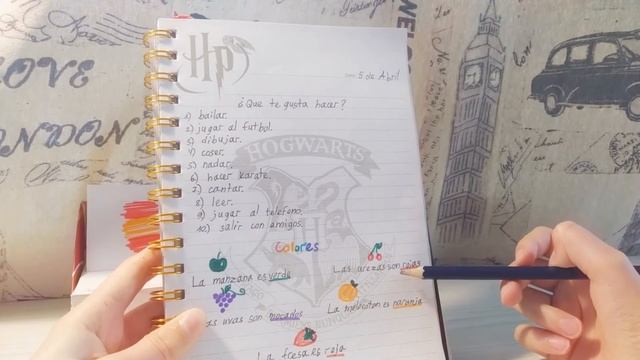 HP
5 de Abril
¿Que te gusta hacer?
1) bailar.
2) jugar al futbol.
3) dibujar.
4) coser.
5) nadar.
6) hacer karate.
7) cantar.
8) leer.
9) jugar al telefono.
10) salir con amigos.
HOGWARTS
Colores
La manzana es verde
Las cerezas son rojas
Las uvas son moradas
La melocoton es naranja
La fresa es roja
LOVE
LONDON